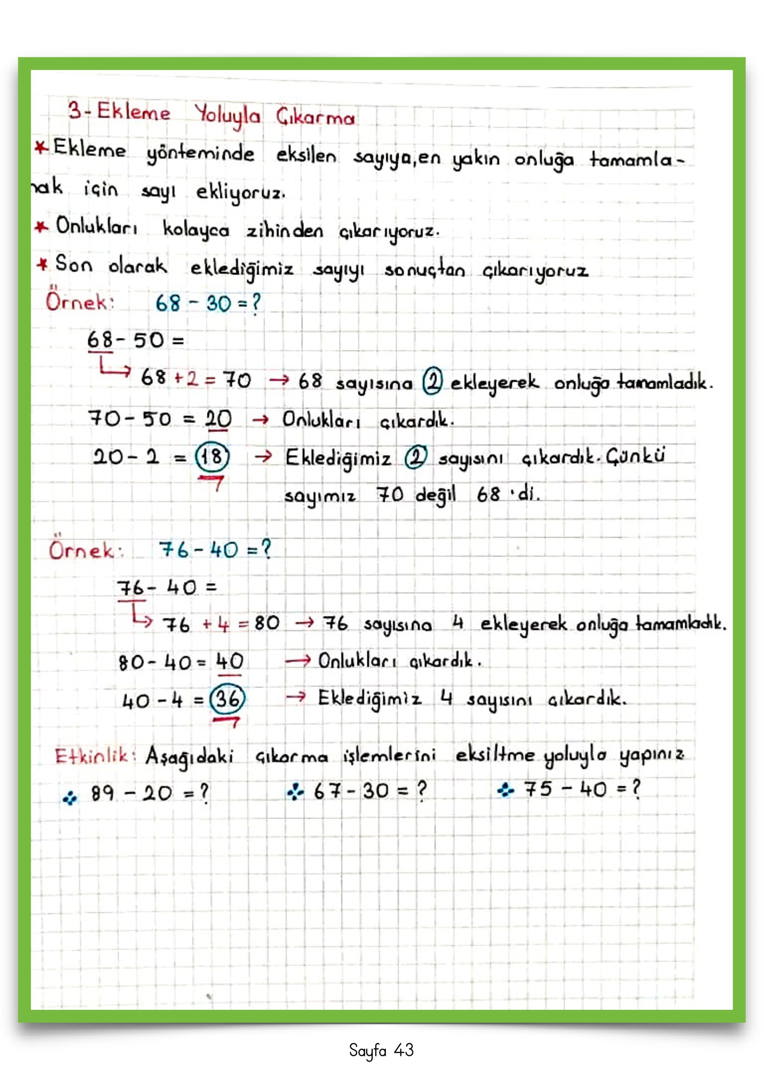 3-Ekleme Yoluyla Çıkarma
* Ekleme yönteminde eksilen sayıya, en yakın onluğa tamamla-
mak için sayı ekliyoruz.
* Onlukları kolayca zihinden çıkarıyoruz.
* Son olarak eklediğimiz sayıyı sonuçtan çıkarıyoruz
Örnek: 68 - 30 = ?
68 - 50 =
68 + 2 = 70 → 68 sayısına 2 ekleyerek onluğa tamamladık.
70 - 50 = 20 → Onlukları çıkardık.
20 - 2 = 18 → Eklediğimiz 2 sayısını çıkardık. Çünkü
sayımız 70 değil 68 'di.
Örnek: 76 - 40 = ?
76 - 40 =
76 + 4 = 80 → 76 sayısına 4 ekleyerek onluğa tamamladık.
80 - 40 = 40 → Onlukları çıkardık.
40 - 4 = 36 → Eklediğimiz 4 sayısını çıkardık.
Etkinlik: Aşağıdaki çıkarma işlemlerini eksiltme yoluyla yapınız
89 - 20 = ? 67 - 30 = ? 75 - 40 = ?
Sayfa 43